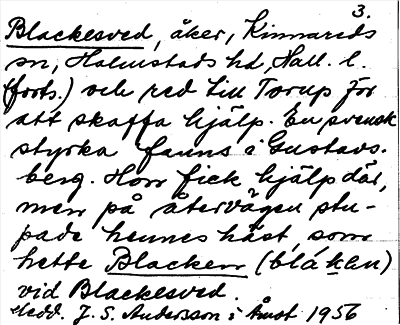 3.
Blackesved, åker, Kinnareds
sn, Halmstads hd, Hall. l.
(forts.) och red till Torup för
att skaffa hjälp. En svensk
styrka fanns i Gustavs-
berg. Hon fick hjälp där,
men på återvägen stu-
pade hennes häst, som
hette Blacken (blákɘn)
vid Blackesved.
Medd. J. S. Andersson i Årnst 1956